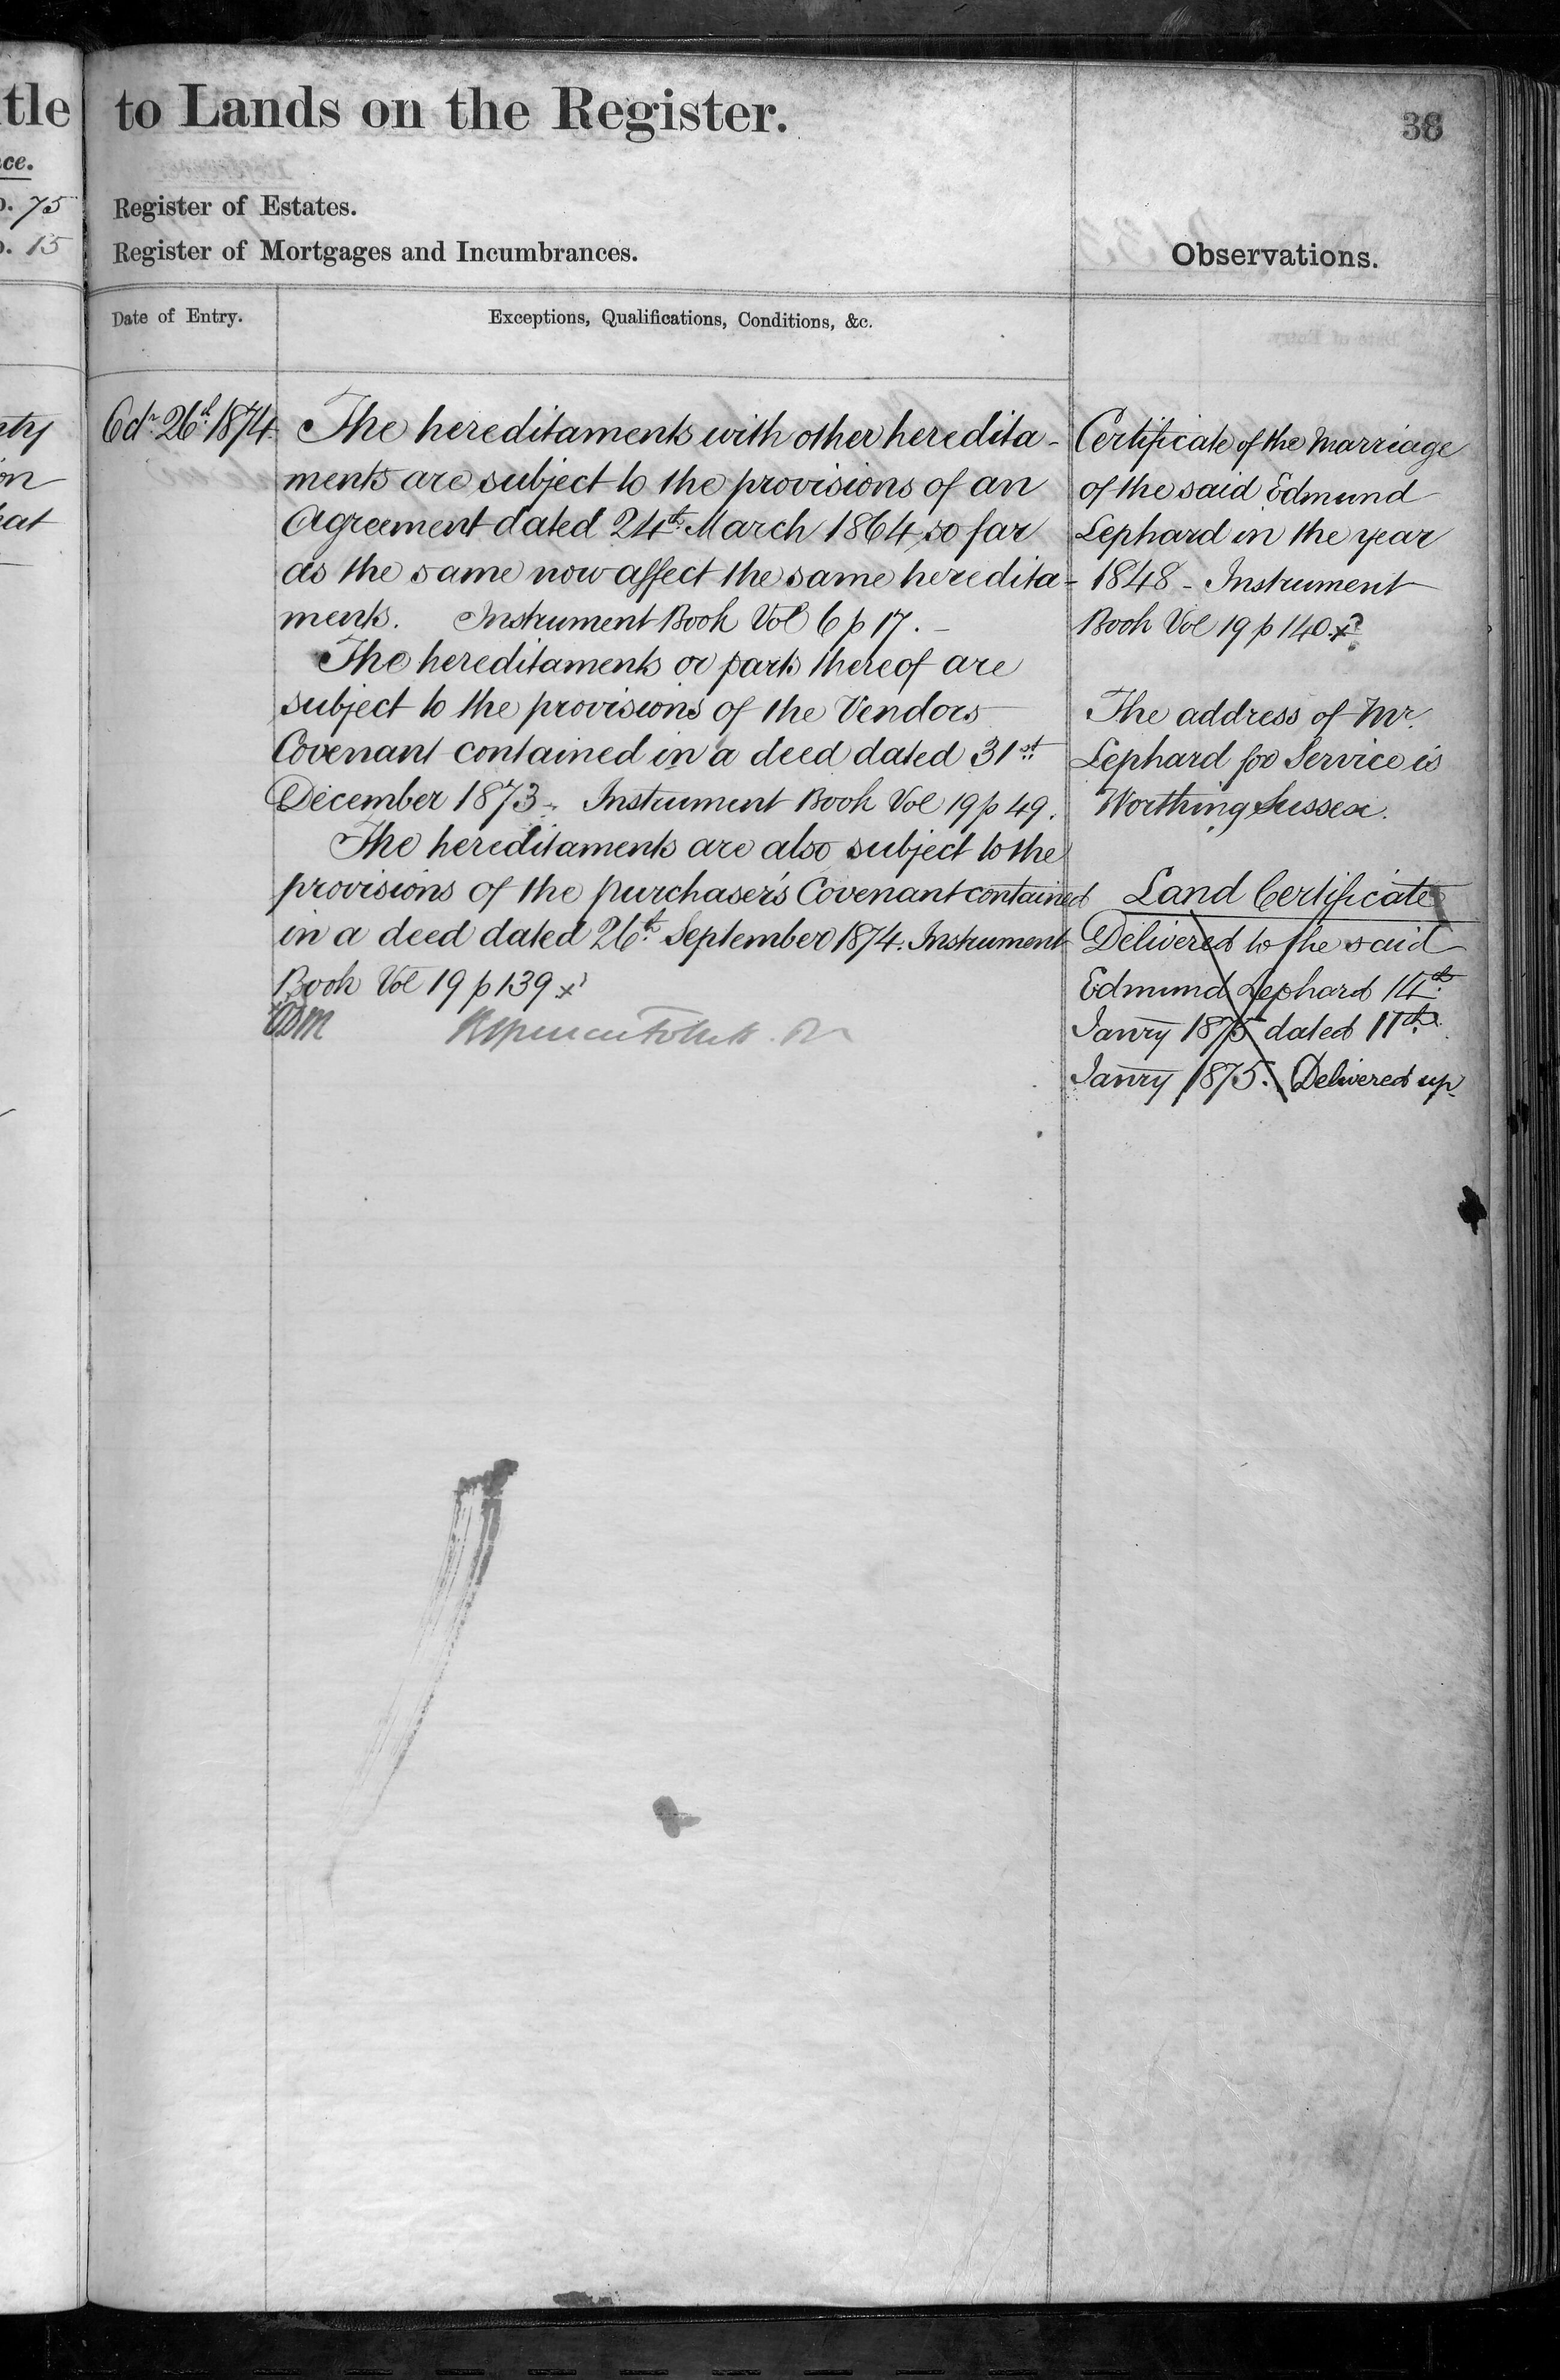 tle
ce.
o. 75
o. 15
on
to Lands on the Register.
38
Register of Estates.
Register of Mortgages and Incumbrances.
Observations.
Date of Entry.
Exceptions, Qualifications, Conditions, &c.
26th 1874.
The hereditaments with other heredita-
ments are subject to the provisions of an
Agreement dated 24th March 1864 so far
as the same now affect the same heredita-
ments. Instrument Book Vol 6 p 17. -
The hereditaments or parts thereof are
subject to the provisions of the Vendors
Covenant contained in a deed dated 31st
December 1873 - Instrument Book Vol 19 p 49.
The hereditaments are also subject to the
provisions of the purchaser's Covenant contained
in a deed dated 26th September 1874. Instrument
Book Vol 19 p 139 x
Certificate of the Marriage
of the said Edmund
Lephard in the year
1848 - Instrument
Book Vol 19 p 140 x
The address of Mr.
Lephard for Service is
Worthing Sussex.
Land Certificate
Delivered to the said
Edmund Lephard 14th
Janry 1875 dated 11th
Janry 1875. Delivered up